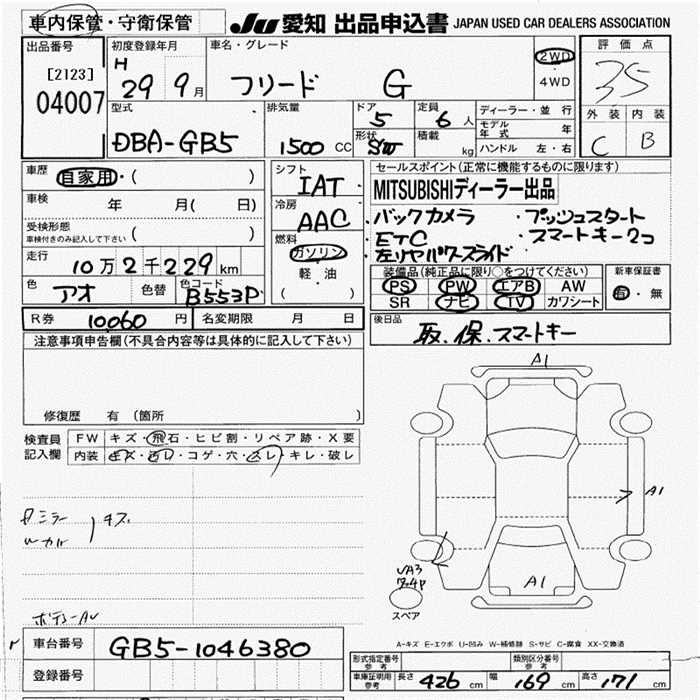 車内保管・守衛保管
JU 愛知 出品申込書 JAPAN USED CAR DEALERS ASSOCIATION
出品番号
[2123]
04007
初度登録年月
H 29 9月
車名・グレード
フリード G
2WD
4WD
評価点
35
外装 内装
C B
型式
DBA-GB5
排気量
1500 CC
ドア
5
形状
定員
6 人
積載
kg
ディーラー・並行
モデル年式 年
ハンドル 左・右
車歴
自家用・( )
車検 年 月( 日)
受検形態
車検付きのみ記入して下さい ( )
走行
10万2千229km
色 アオ 色替 色コード B553P
シフト
IAT
冷房
AAC
燃料
ガソリン
軽・油
( )
セールスポイント(正常に機能するものに限ります)
MITSUBISHIディーラー出品
・バックカメラ ・プッシュスタート
・ETC ・スマートキー2コ
・左リヤパワースライド
装備品(純正品に限り○をつけてください)
PS PW エアB AW
SR ナビ TV カワシート
新車保証書
有・無
R券 10060 円 名変期限 月 日
後日品
取.保.スマートキー
注意事項申告欄(不具合内容等は具体的に記入して下さい)
修復歴 有 (箇所 )
検査員記入欄
FW キズ・飛石・ヒビ割・リペア跡・X要
内装 キズ・汚レ・コゲ・穴・スレ・キレ・破レ
ミラー
キズ
A1
A1
A1
スペア
A-キズ E-エクボ U-凹み W-補修跡 S-サビ C-腐食 XX-交換済
車台番号 GB5-1046380
登録番号
形式指定番号参考 類別区分番号参考
車庫証明用参考 長さ 426 cm 幅 169 cm 高さ 171 cm